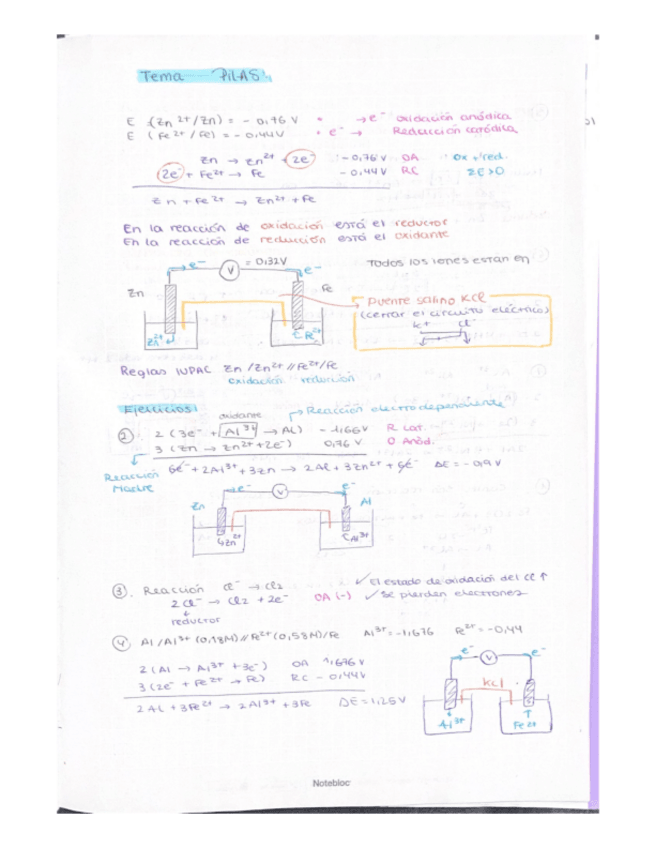 Tema PILAS
E (Zn²⁺/Zn) = - 0,76 V • → e⁻ oxidación anódica
E (Fe²⁺/Fe) = - 0,44 V • e⁻ → Reducción catódica
Zn → Zn²⁺ + 2e⁻ - 0,76 V OA Ox + red.
2e⁻ + Fe²⁺ → Fe - 0,44 V RC ΣE>0
Zn + Fe²⁺ → Zn²⁺ + Fe
En la reacción de oxidación está el reductor
En la reacción de reducción está el oxidante
e⁻ V = 0,32V e⁻ Todos los iones están en
Zn Fe
Puente salino KCl
(cerrar el circuito eléctrico)
K+ Cl⁻
Zn²⁺ Fe²⁺
Reglas IUPAC Zn/Zn²⁺//Fe²⁺/Fe
oxidación reducción
Ejercicios:
oxidante → Reacción electrodependiente
② 2 (3e⁻ + Al³⁺ → Al) - 1,66V R Cat.
3 (Zn → Zn²⁺ + 2e⁻) 0,76 V O Anód.
Reacción Madre
6e⁻ + 2Al³⁺ + 3Zn → 2Al + 3Zn²⁺ + 6e⁻ ΔE = - 0,9 V
e⁻ V e⁻
Zn Al
Zn²⁺ Al³⁺
③. Reacción Cl⁻ → Cl₂ ✓ El estado de oxidación del Cl ↑
2Cl⁻ → Cl₂ + 2e⁻ OA (-) ✓ Se pierden electrones
reductor
④ Al/Al³⁺ (0,18M)//Fe²⁺(0,58M)/Fe Al³⁺=-1,676 Fe²⁺=-0,44
2 (Al → Al³⁺ + 3e⁻) OA 1,676 V
3 (2e⁻ + Fe²⁺ → Fe) RC - 0,44V
2Al + 3Fe²⁺ → 2Al³⁺ + 3Fe ΔE = 1,25 V
e⁻ V e⁻
KCl
Al³⁺ Fe²⁺
Notebloc